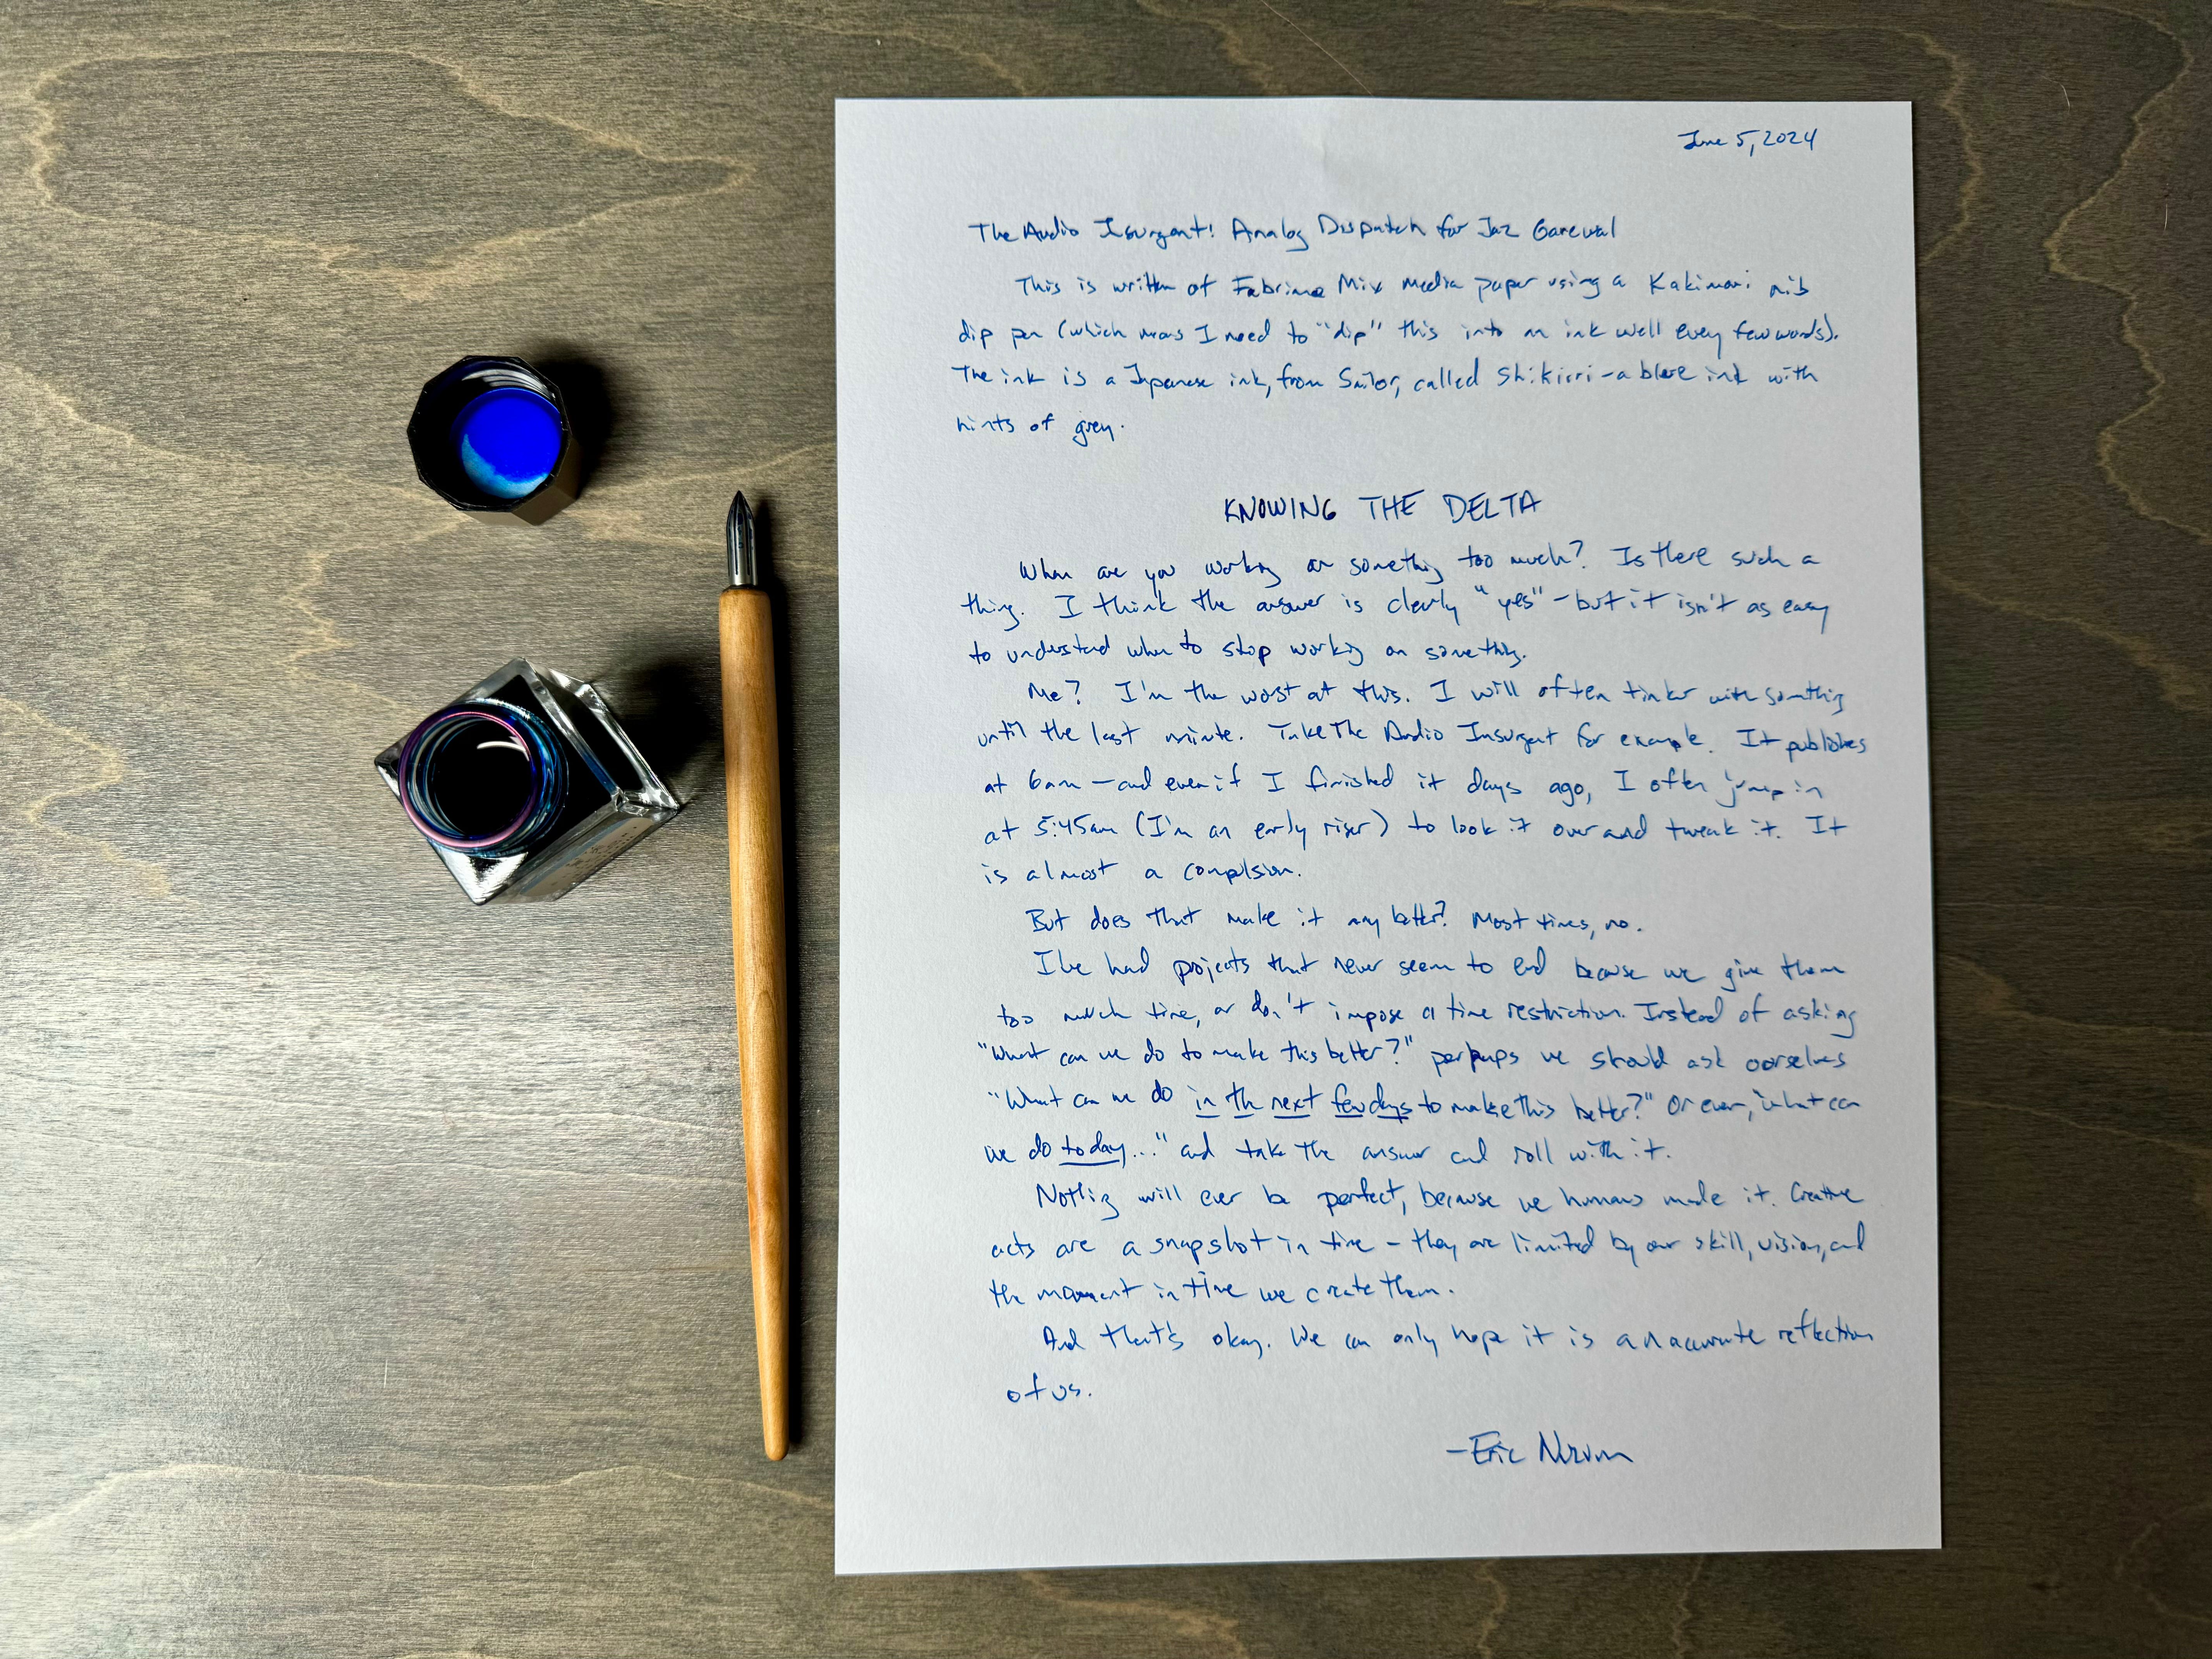 June 5, 2024
The Audio Insurgent! Analog Dispatch for Jaz Garewal
This is written of Fabriano Mix Media paper using a Kakimori nib
dip pen (which means I need to "dip" this into an ink well every few words).
The ink is a Japanese ink, from Sailor, called Shikiori - a blue ink with
hints of grey.
KNOWING THE DELTA
When are you working on something too much? Is there such a
thing. I think the answer is clearly "yes" - but it isn't as easy
to understand when to stop working on something.
Me? I'm the worst at this. I will often tinker with something
until the last minute. Take The Audio Insurgent for example. It publishes
at 6am - and even if I finished it days ago, I often jump in
at 5:45am (I'm an early riser) to look it over and tweak it. It
is almost a compulsion.
But does that make it any better? Most times, no.
I've had projects that never seem to end because we give them
too much time, or don't impose a time restriction. Instead of asking
"What can we do to make this better?" perhaps we should ask ourselves
"What can we do in the next few days to make this better?" Or even, "what can
we do today..." and take the answer and roll with it.
Nothing will ever be perfect, because we humans made it. Creative
acts are a snapshot in time - they are limited by our skill, vision, and
the moment in time we create them.
And that's okay. We can only hope it is an accurate reflection
of us.
- Eric Nuzum